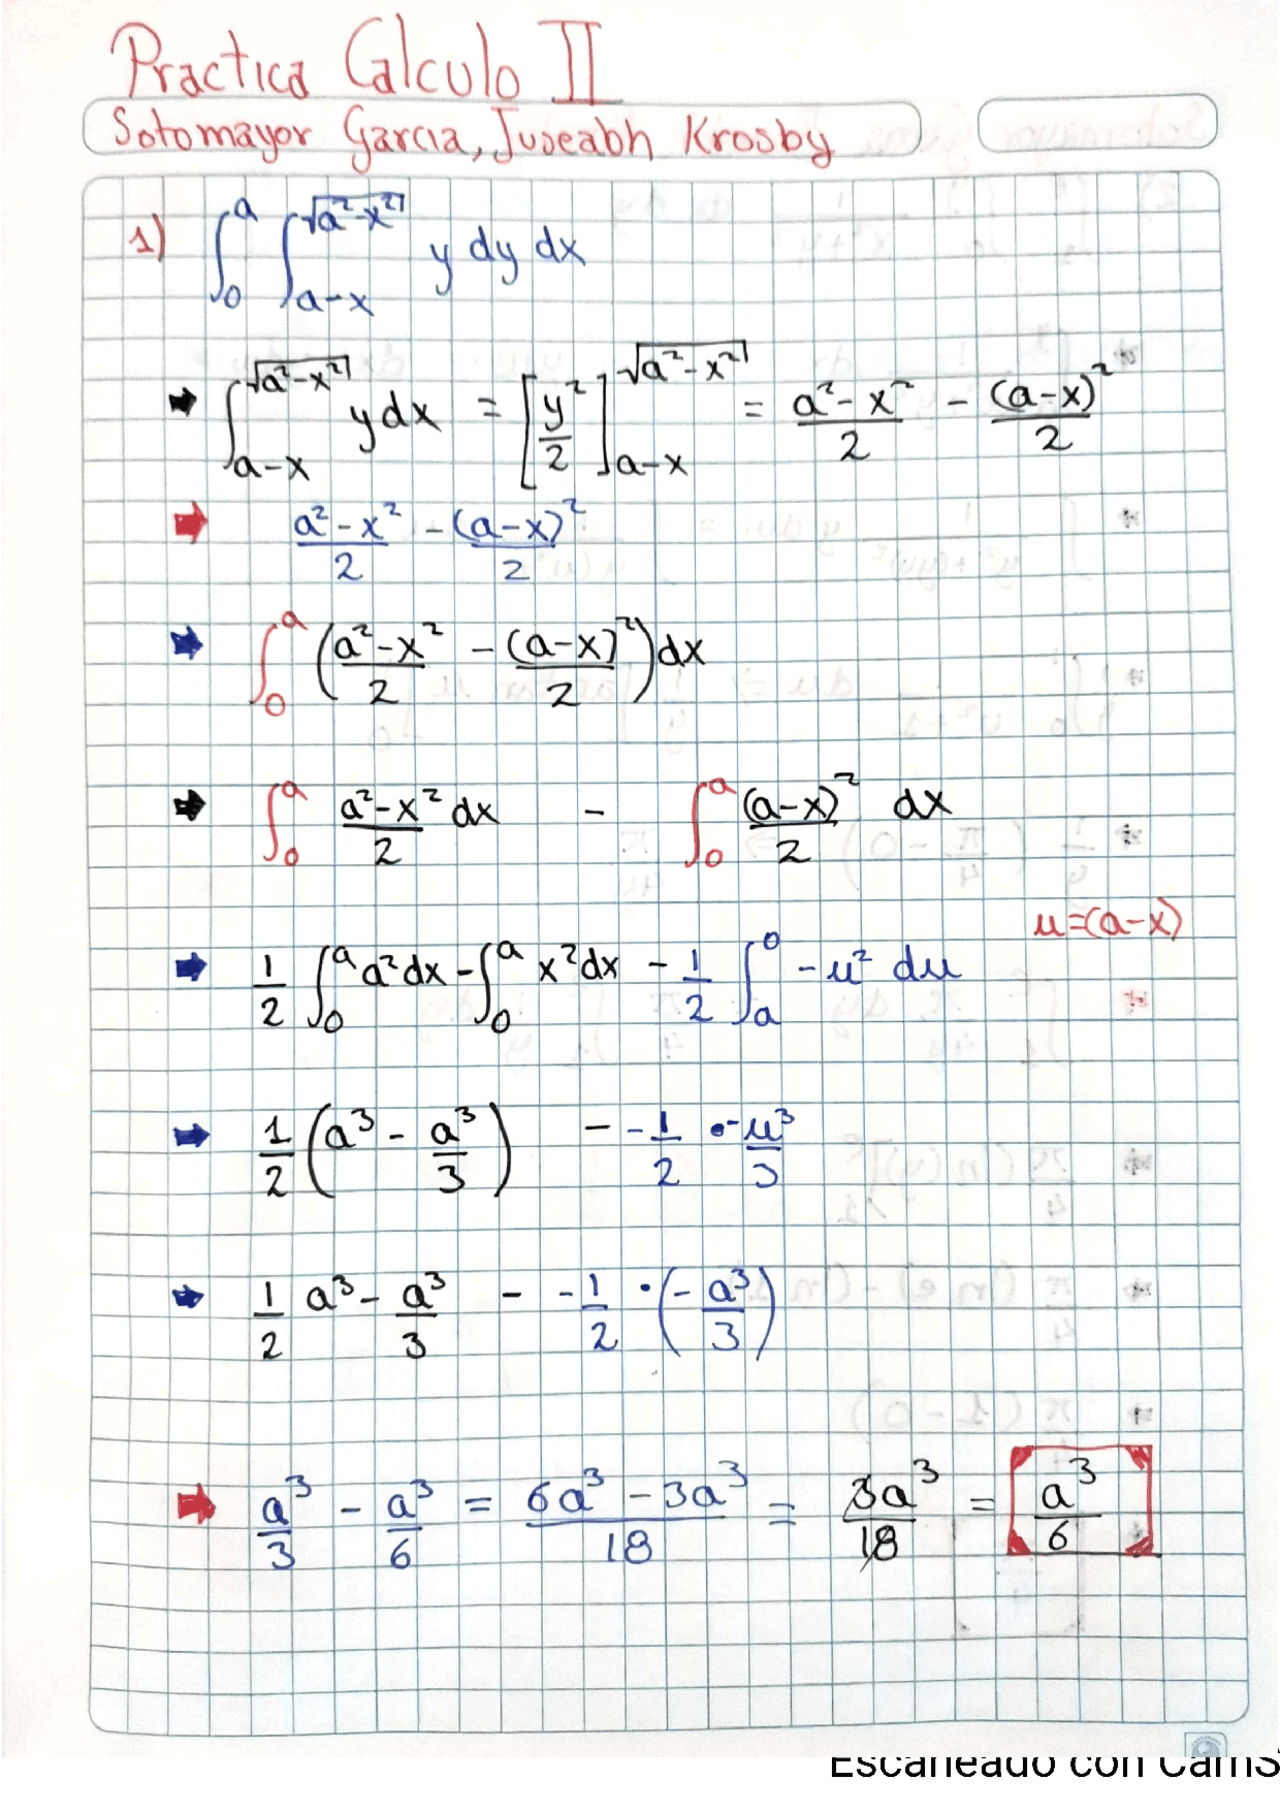 Practica Calculo II
Sotomayor Garcia, Juseabh Krosby
1) ∫₀^a ∫_{a-x}^{√(a²-x²)} y dy dx
➡ ∫_{a-x}^{√(a²-x²)} y dx = [y²/2]_{a-x}^{√(a²-x²)} = (a²-x²)/2 - (a-x)²/2
➡ (a²-x²)/2 - (a-x)²/2
➡ ∫₀^a ((a²-x²)/2 - (a-x)²/2) dx
➡ ∫₀^a (a²-x²)/2 dx - ∫₀^a (a-x)²/2 dx
u=(a-x)
➡ 1/2 ∫₀^a a² dx - ∫₀^a x² dx - 1/2 ∫_a^0 -u² du
➡ 1/2 (a³ - a³/3) - -1/2 · -u³/3
➡ 1/2 a³ - a³/3 - -1/2 · (-a³/3)
➡ a³/3 - a³/6 = (6a³ - 3a³)/18 = 3a³/18 = a³/6
Escaneado con CamS